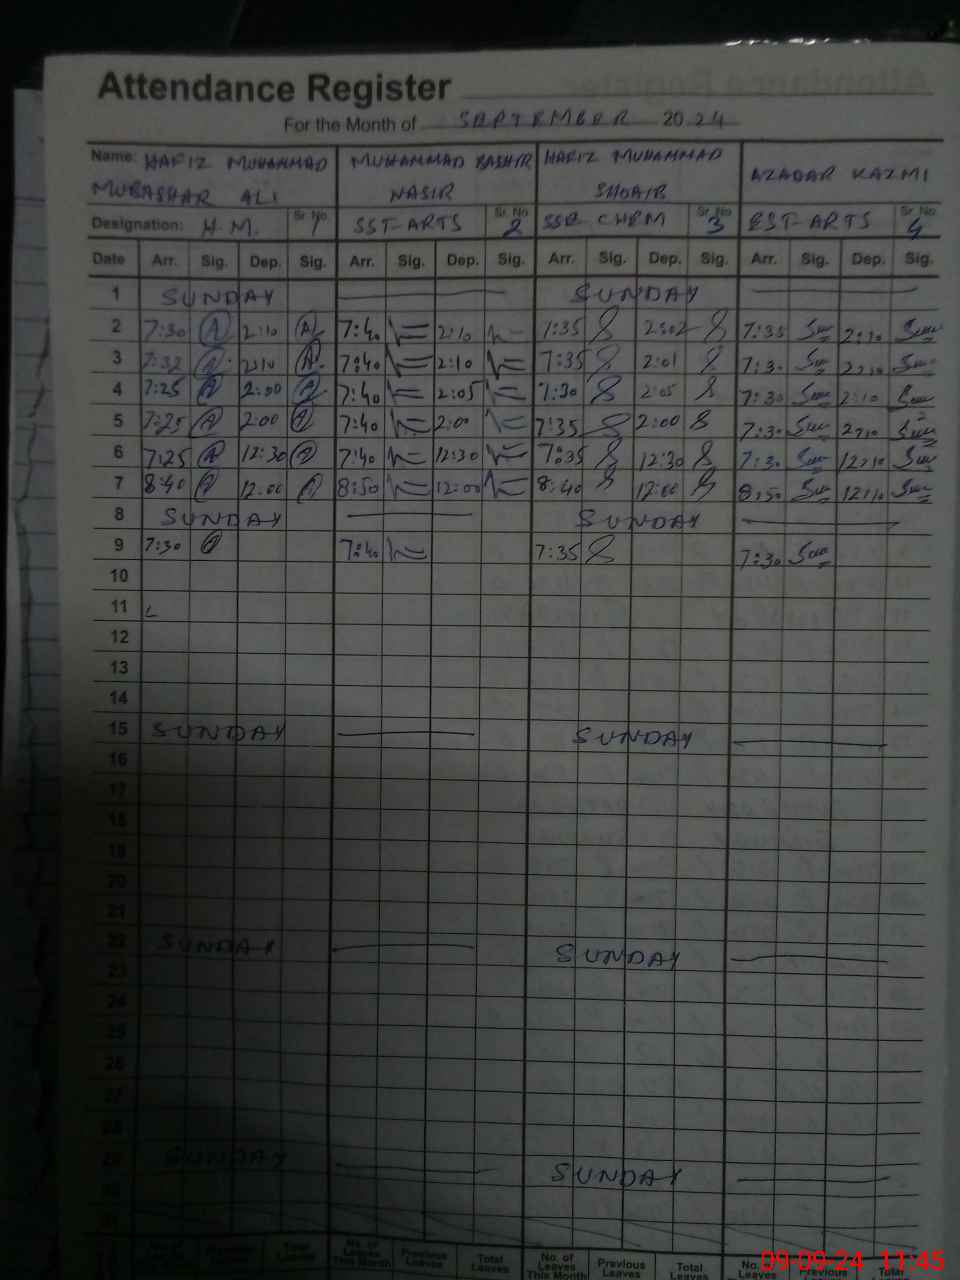 Attendance Register
For the Month of SEPTEMBER 2024
Name: HAFIZ MUHAMMAD MUBASHAR ALI MUHAMMAD BASHIR NASIR HAFIZ MUHAMMAD SHOAIB AZADAR KAZMI
Designation: H.M. Sr. No. 1 SST-ARTS Sr. No. 2 SSE CHEM Sr. No. 3 EST-ARTS Sr. No. 4
Date Arr. Sig. Dep. Sig. Arr. Sig. Dep. Sig. Arr. Sig. Dep. Sig. Arr. Sig. Dep. Sig.
1 SUNDAY SUNDAY
2 7:30 2:10 7:40 2:10 7:35 2:02 7:35 2:10
3 7:32 2:10 7:40 2:10 7:35 2:01 7:30 2:10
4 7:25 2:00 7:40 2:05 7:30 2:05 7:30 2:10
5 7:25 2:00 7:40 2:00 7:35 2:00 7:30 2:10
6 7:25 12:30 7:40 12:30 7:35 12:30 7:30 12:10
7 8:40 12:00 8:50 12:00 8:40 12:00 8:50 12:10
8 SUNDAY SUNDAY
9 7:30 7:40 7:35 7:30
10
11
12
13
14
15 SUNDAY SUNDAY
16
17
18
19
20
21
22 SUNDAY SUNDAY
23
24
25
26
27
28
29 SUNDAY SUNDAY
30
31
Total Leaves No. of Leaves This Month Previous Leaves Total Leaves No. of Leaves This Month Previous Leaves Total Leaves No. Previous Total
09-09-24 11:45